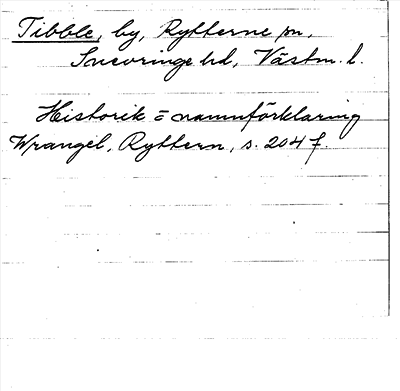 Tibble, by, Rytterne sn,
Snevringe hd, Västm. l.
Historik = namnförklaring
Wrangel, Ryttern, s. 204 f.